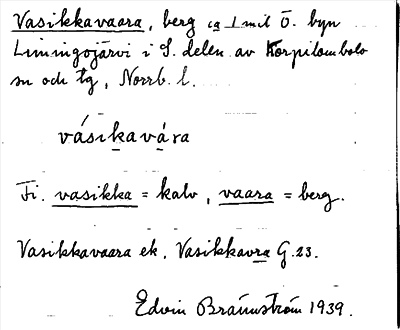 Vasikkavaara, berg ca 1 mil Ö. byn
Limingojärvi i S. delen av Korpilombolo
sn och tg, Norrb. l.
vásikavàra
Fi. vasikka = kalv, vaara = berg.
Vasikkavaara ek, Vasikkavra G.23.
Edvin Brännström 1939.